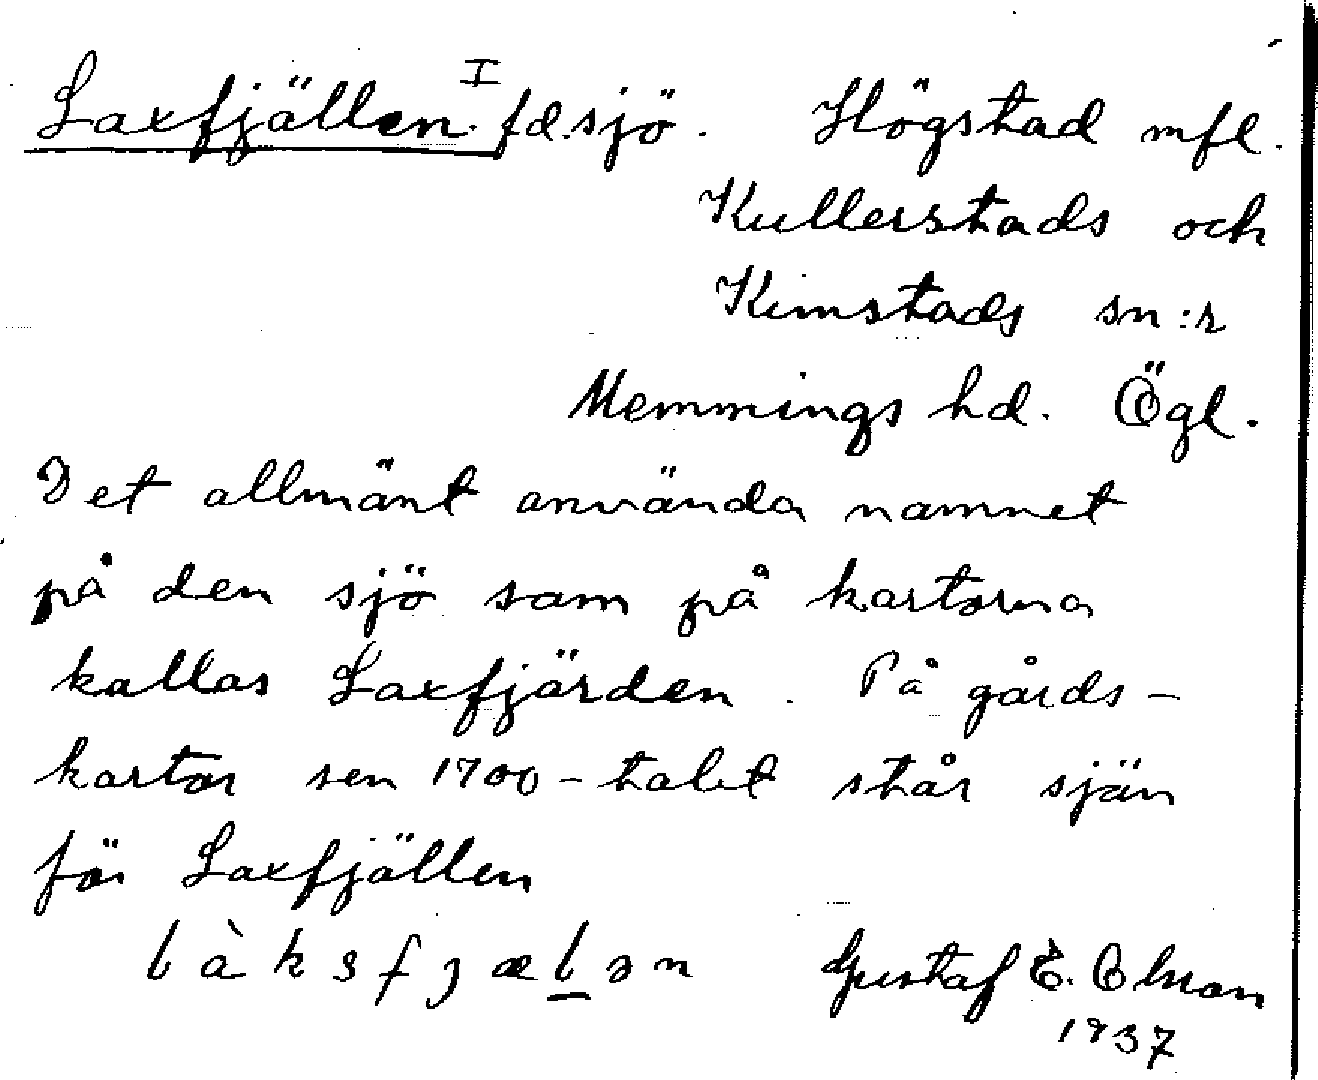 Laxfjällen. I fd. sjö. Högstad mfl.
Kullerstads och
Kimstads sn:r
Memmings hd. Ögl.
Det allmänt använda namnet
på den sjö som på kartorna
kallas Laxfjärden. På gårds-
kartor sen 1700-talet står sjön
för Laxfjällen
làksfjælən Gustaf E.
1937